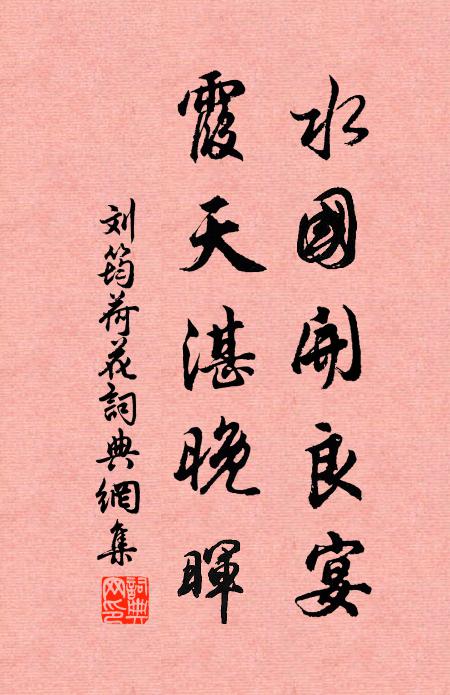 水國開良宴
霞天湛晚暉
刘筠荷花詞典網集
詞典網印